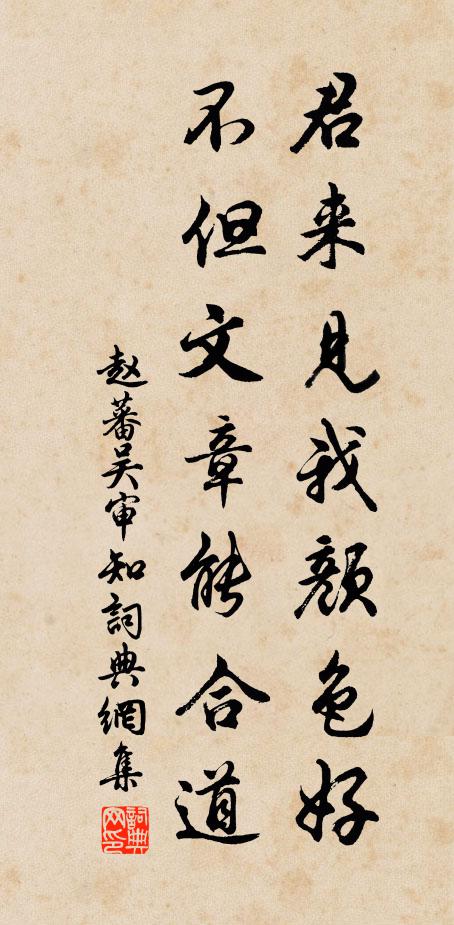 君来見我顏色好
不但文章能合道
赵蕃吴审知詞典網集
詞典网印